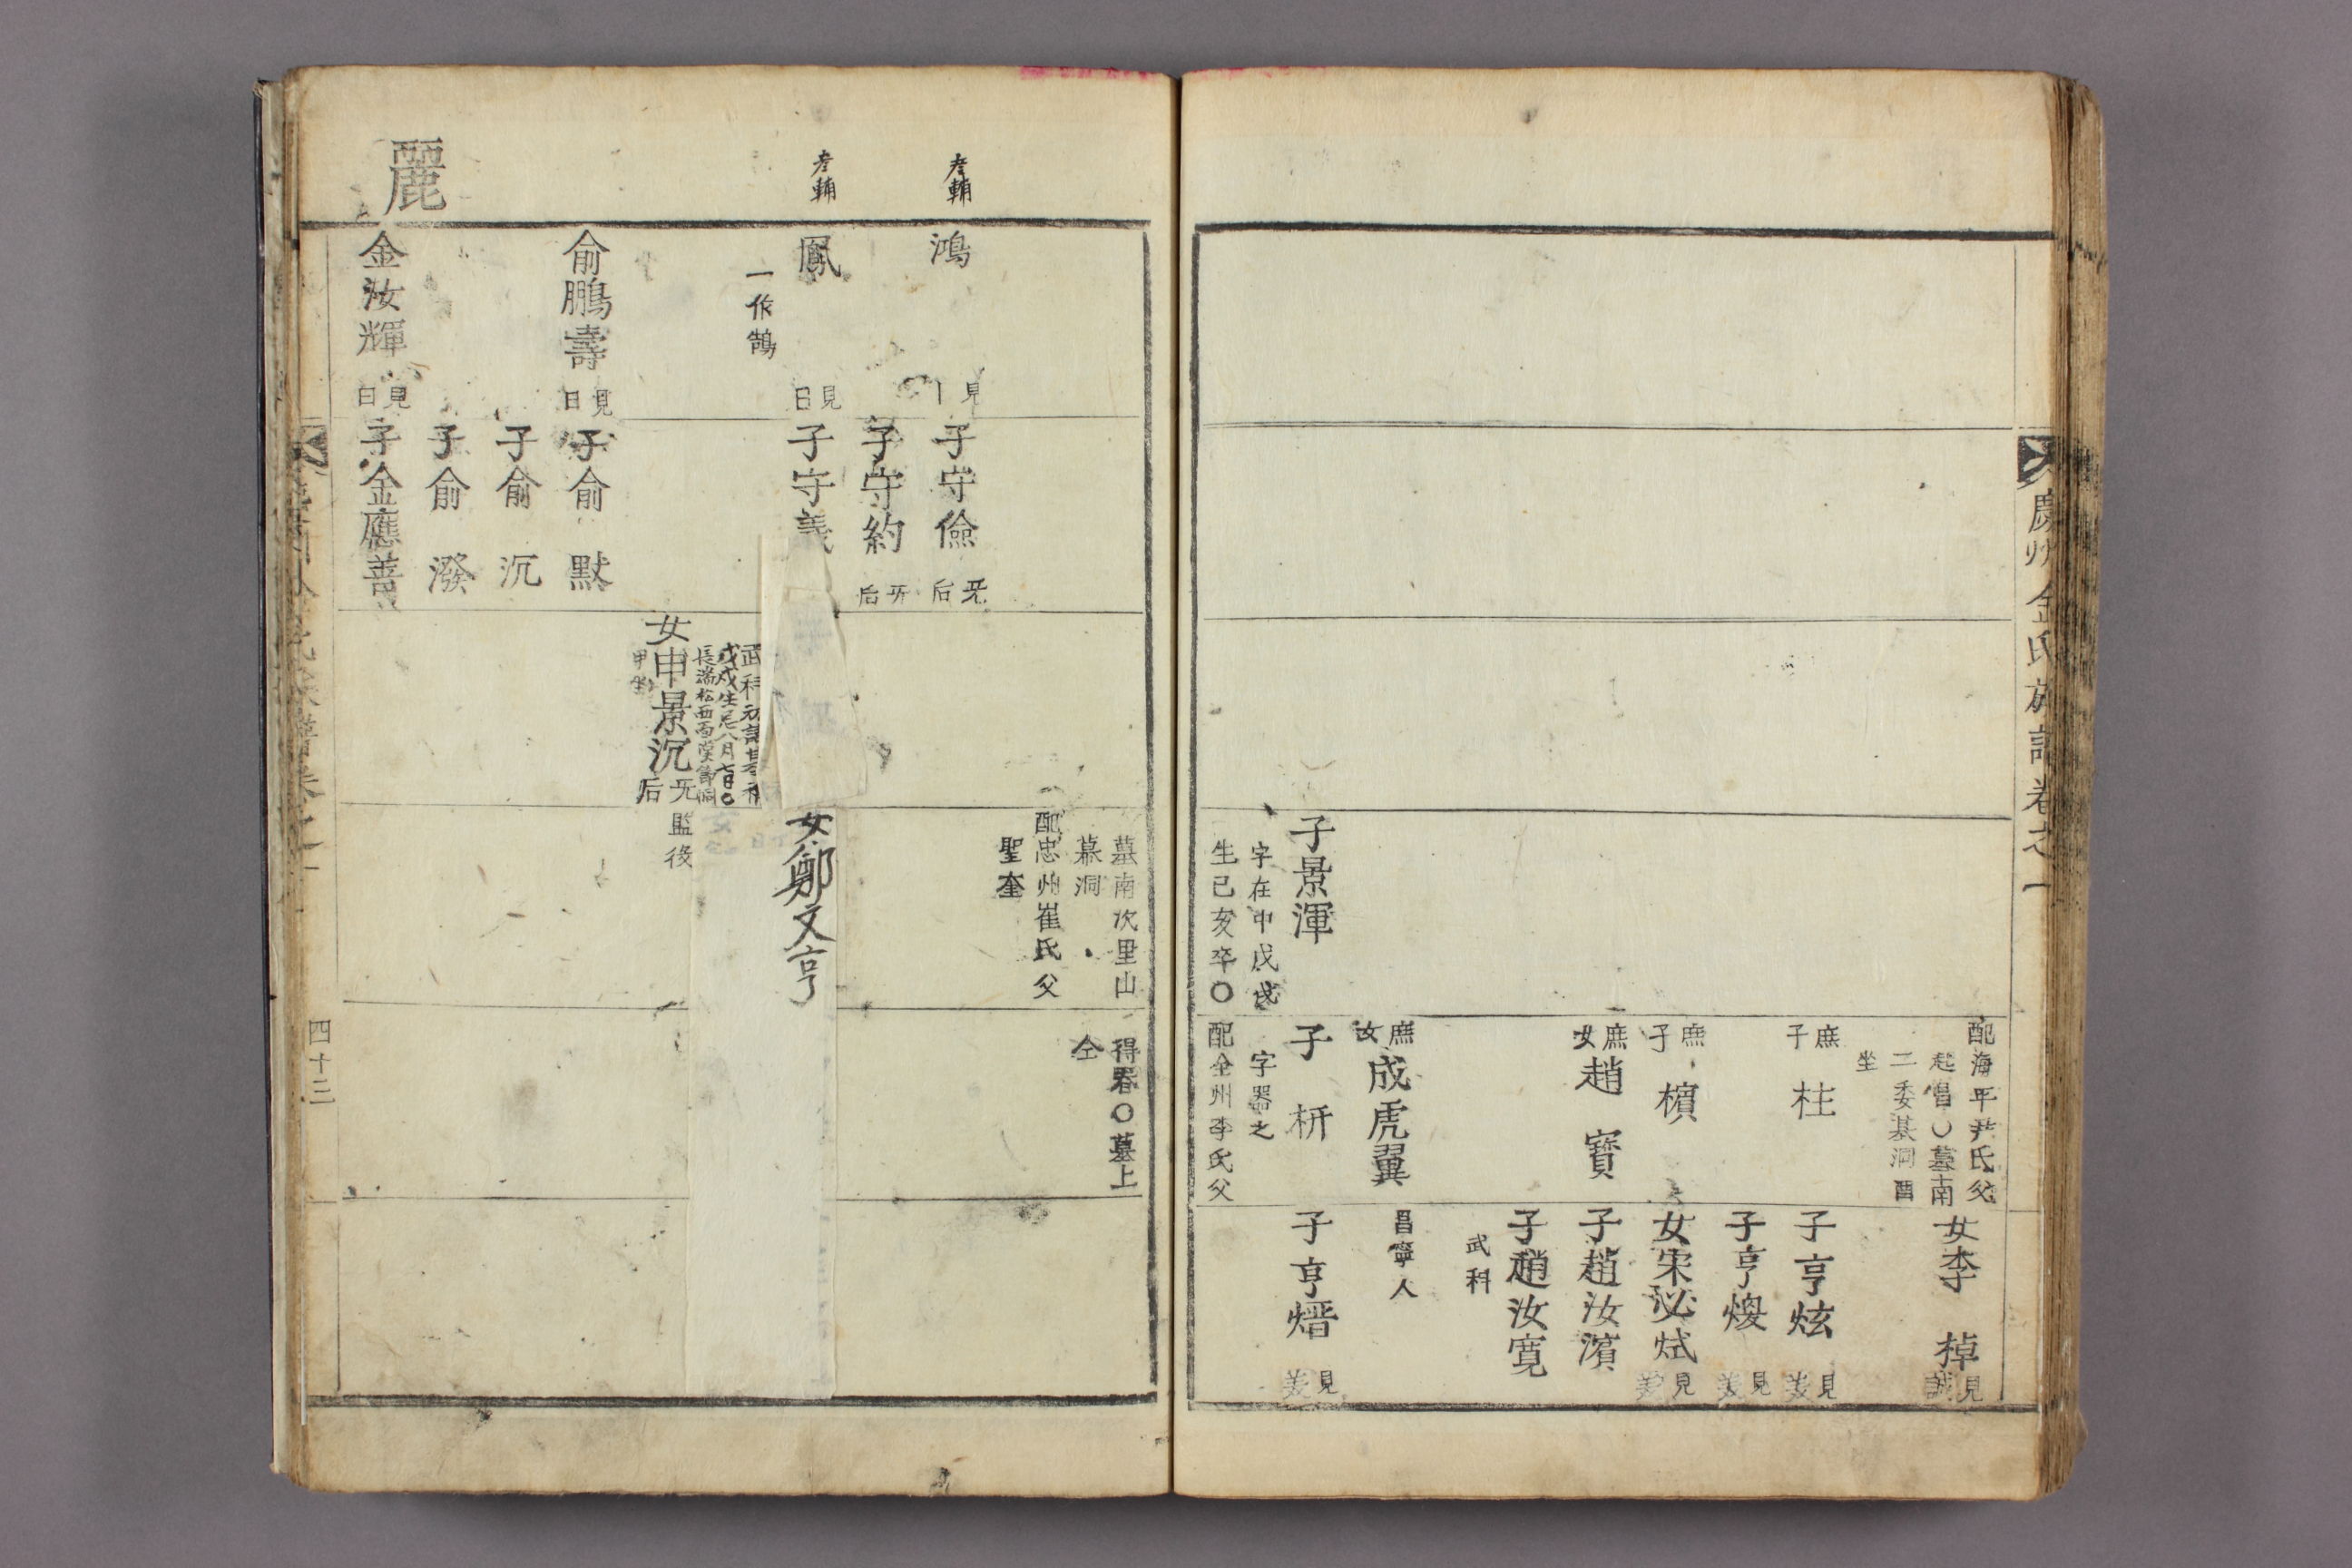 慶州金氏族譜卷之一
配海平尹氏父
起昌〇墓南
二委基洞酉
坐
女李 棹
見誠
庶子 柱
子亨炫
見美
子亨煥
見美
庶子 檳
女宋泌栻
見美
庶女趙 寶
子趙汝濱
子趙汝寬
武科
庶女成虎翼
昌寧人
子景渾
字在中戊戌
生己亥卒〇
子 枅
字器之
配全州李氏父
子亨熸
見美
墓南次里山
慕洞
配忠州崔氏父
聖奎
得器〇墓上
仝
孝輔
鴻
見
子守儉
旡后
子守約
旡后
孝輔
鳳
一作鵠
見日
子守義
女鄭文亨
武科
戊戌生忌八月
女申景沉
旡后
監役
俞鵬壽
見日
子俞 默
子俞 沉
子俞 潑
麗
金汝輝
見日
子金應善
四十三